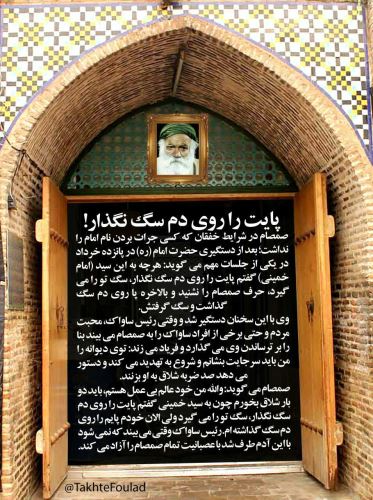 پایت را روی دم سگ نگذار!
صمصام در شرایط خفقان که کسی جرات بردن نام امام را
نداشت؛ بعد از دستگیری حضرت امام(ره) در پانزده خرداد
در یکی از جلسات مهم می گوید: هرچه به این سید (امام
خمینی) گفتم پایت را روی دم سگ نگذار، سگ تو را می
گیرد، حرف صمصام را نشنید و بالاخره پا روی دم سگ
گذاشت و سگ گرفتش.
وی با این سخنان دستگیر شد و وقتی رئیس ساواک، محبت
مردم و حتی برخی از افراد ساواک را به صمصام می بیند بنا
را بر ترساندن وی می گذارد و فریاد می زند: توی دیوانه را
من باید سر جایت بنشانم و شروع به تهدید می کند و دستور
می دهد صد ضربه شلاق به او بزنند.
صمصام می گوید: والله من خود عالم بی عمل هستم، باید دو
بار شلاق بخورم چون به سید خمینی گفتم پایت را روی دم
سگ نگذار، سگ تو را می گیرد ولی الان خودم پایم را روی
دم سگ گذاشته ام. رئیس ساواک وقتی می بیند که نمی شود
با این آدم طرف شد با عصبانیت تمام صمصام را آزاد می کند.
@TakhteFoulad